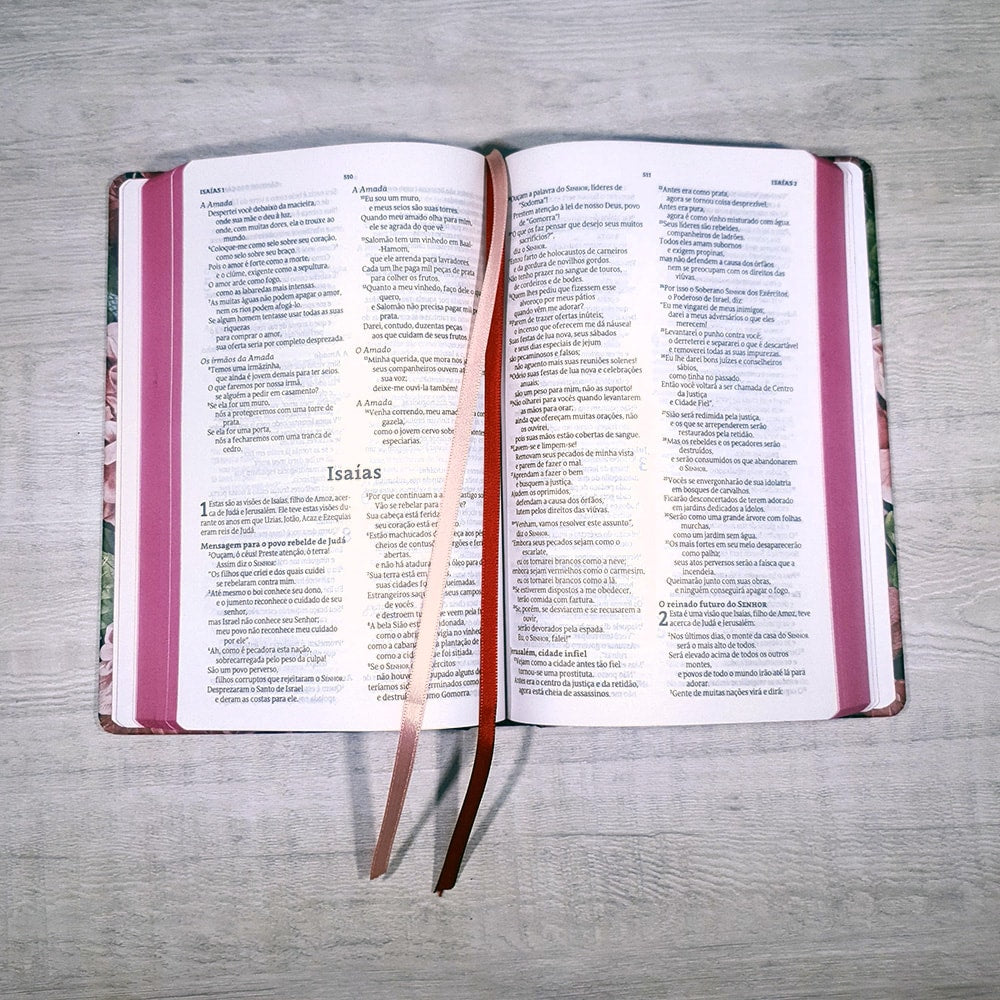 ISAÍAS 1
510
A Amada
Despertei você debaixo da macieira,
onde sua mãe o deu à luz,
onde, com muitas dores, ela o trouxe ao
mundo.
Coloque-me como selo sobre seu coração,
como selo sobre seu braço.
Pois o amor é forte como a morte,
e o ciúme, exigente como a sepultura.
O amor arde como fogo,
como as labaredas mais intensas.
As muitas águas não podem apagar o amor,
nem os rios podem afogá-lo.
Se algum homem tentasse usar todas as suas
riquezas
para comprar o amor,
sua oferta seria por completo desprezada.
Os irmãos da Amada
Temos uma irmãzinha,
que ainda é jovem demais para ter seios.
O que faremos por nossa irmã,
se alguém a pedir em casamento?
Se ela for um muro,
nós a protegeremos com uma torre de
prata.
Se ela for uma porta,
nós a fecharemos com uma tranca de
cedro.
A Amada
Eu sou um muro,
e meus seios são suas torres.
Quando meu amado olha para mim,
ele se agrada do que vê.
Salomão tem um vinhedo em Baal-
-Hamom,
que ele arrenda para lavradores.
Cada um lhe paga mil peças de prata
para colher os frutos.
Quanto a meu vinhedo, faço dele o
quero,
e Salomão não precisa pagar mil
prata.
Darei, contudo, duzentas peças
aos que cuidam de seus frutos.
O Amado
Minha querida, que mora nos
seus companheiros ouvem
sua voz;
deixe-me ouvi-la também!
A Amada
Venha correndo, meu
gazela,
como o jovem cervo
especiarias.
Isaías
1 Estas são as visões de Isaías, filho de Amoz, acer-
ca de Judá e Jerusalém. Ele teve estas visões du-
rante os anos em que Uzias, Jotão, Acaz e Ezequias
eram reis de Judá.
Mensagem para o povo rebelde de Judá
Ouçam, ó céus! Preste atenção, ó terra!
Assim diz o SENHOR:
Os filhos que criei e dos quais cuidei
se rebelaram contra mim.
Até mesmo o boi conhece seu dono,
e o jumento reconhece o cuidado de seu
senhor,
mas Israel não conhece seu Senhor;
meu povo não reconhece meu cuidado
por ele".
Ah, como é pecadora esta nação,
sobrecarregada pelo peso da culpa!
São um povo perverso,
filhos corruptos que rejeitaram o SENHOR.
Desprezaram o Santo de Israel
e deram as costas para ele.
Por que continuam a
Vão se rebelar para
Sua cabeça está ferida
seu coração está
Estão machucados
cheios de
abertas,
e não há ataduras óleo para
Sua terra está em
suas cidades
Estrangeiros campos
de vocês
e destroem
A bela Sião está
como o vigia no vinhedo
como a cabana plantação de
como a sitiada.
Se o SENHOR
não poupado alguns
teríamos sido exterminados como
e Gomorra.
511
ISAÍAS 2
Ouçam a palavra do SENHOR, líderes de
"Sodoma"!
Prestem atenção à lei de nosso Deus, povo
de "Gomorra"!
"O que os faz pensar que desejo seus muitos
sacrifícios?",
diz o SENHOR.
Estou farto de holocaustos de carneiros
e da gordura de novilhos gordos.
Não tenho prazer no sangue de touros,
de cordeiros e de bodes.
Quem lhes pediu que fizessem esse
alvoroço por meus pátios
quando vêm me adorar?
Parem de trazer ofertas inúteis;
o incenso que oferecem me dá náusea!
Suas festas de lua nova, seus sábados
e seus dias especiais de jejum
são pecaminosos e falsos;
não aguento mais suas reuniões solenes!
Odeio suas festas de lua nova e celebrações
anuais;
são um peso para mim, não as suporto!
Não olharei para vocês quando levantarem
as mãos para orar;
ainda que ofereçam muitas orações, não
os ouvirei,
pois suas mãos estão cobertas de sangue.
Lavem-se e limpem-se!
Removam seus pecados de minha vista
e parem de fazer o mal.
Aprendam a fazer o bem
e busquem a justiça.
Ajudem os oprimidos,
defendam a causa dos órfãos,
lutem pelos direitos das viúvas.
"Venham, vamos resolver este assunto",
diz o SENHOR.
"Embora seus pecados sejam como o
escarlate,
eu os tornarei brancos como a neve;
embora sejam vermelhos como o carmesim,
eu os tornarei brancos como a lã.
Se estiverem dispostos a me obedecer,
terão comida com fartura.
Se, porém, se desviarem e se recusarem a
ouvir,
serão devorados pela espada.
Eu, o SENHOR, falei!"
Jerusalém, cidade infiel
Vejam como a cidade antes tão fiel
tornou-se uma prostituta.
Antes era o centro da justiça e da retidão,
agora está cheia de assassinos.
Antes era como prata,
agora se tornou coisa desprezível.
Antes era pura,
agora é como vinho misturado com água.
Seus líderes são rebeldes,
companheiros de ladrões.
Todos eles amam subornos
e exigem propinas,
mas não defendem a causa dos órfãos
nem se preocupam com os direitos das
viúvas.
Por isso o Soberano SENHOR dos Exércitos,
o Poderoso de Israel, diz:
"Eu me vingarei de meus inimigos;
darei a meus adversários o que eles
merecem!
Levantarei o punho contra você;
o derreterei e separarei o que é descartável
e removerei todas as suas impurezas.
Eu lhe darei bons juízes e conselheiros
sábios,
como tinha no passado.
Então você voltará a ser chamada de Centro
da Justiça
e Cidade Fiel".
Sião será redimida pela justiça,
e os que se arrependerem serão
restaurados pela retidão.
Mas os rebeldes e os pecadores serão
destruídos,
e serão consumidos os que abandonarem
o SENHOR.
Vocês se envergonharão de sua idolatria
em bosques de carvalhos.
Ficarão desconcertados de terem adorado
em jardins dedicados a ídolos.
Serão como uma grande árvore com folhas
murchas,
como um jardim sem água.
Os mais fortes em seu meio desaparecerão
como palha;
seus atos perversos serão a faísca que a
incendeia.
Queimarão junto com suas obras,
e ninguém conseguirá apagar o fogo.
O reinado futuro do SENHOR
2 Esta é uma visão que Isaías, filho de Amoz, teve
acerca de Judá e Jerusalém.
Nos últimos dias, o monte da casa do SENHOR
será o mais alto de todos.
Será elevado acima de todos os outros
montes,
e povos de todo o mundo irão até lá para
adorar.
Gente de muitas nações virá e dirá: